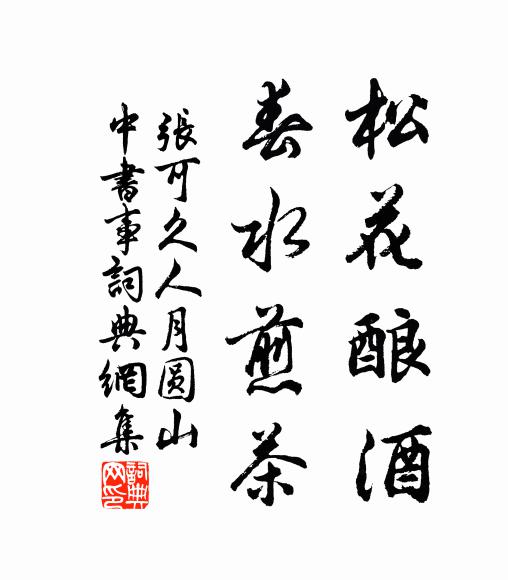 松花酿酒
春水煎茶
張可久人月圆山
中書事詞典網集
詞典网印